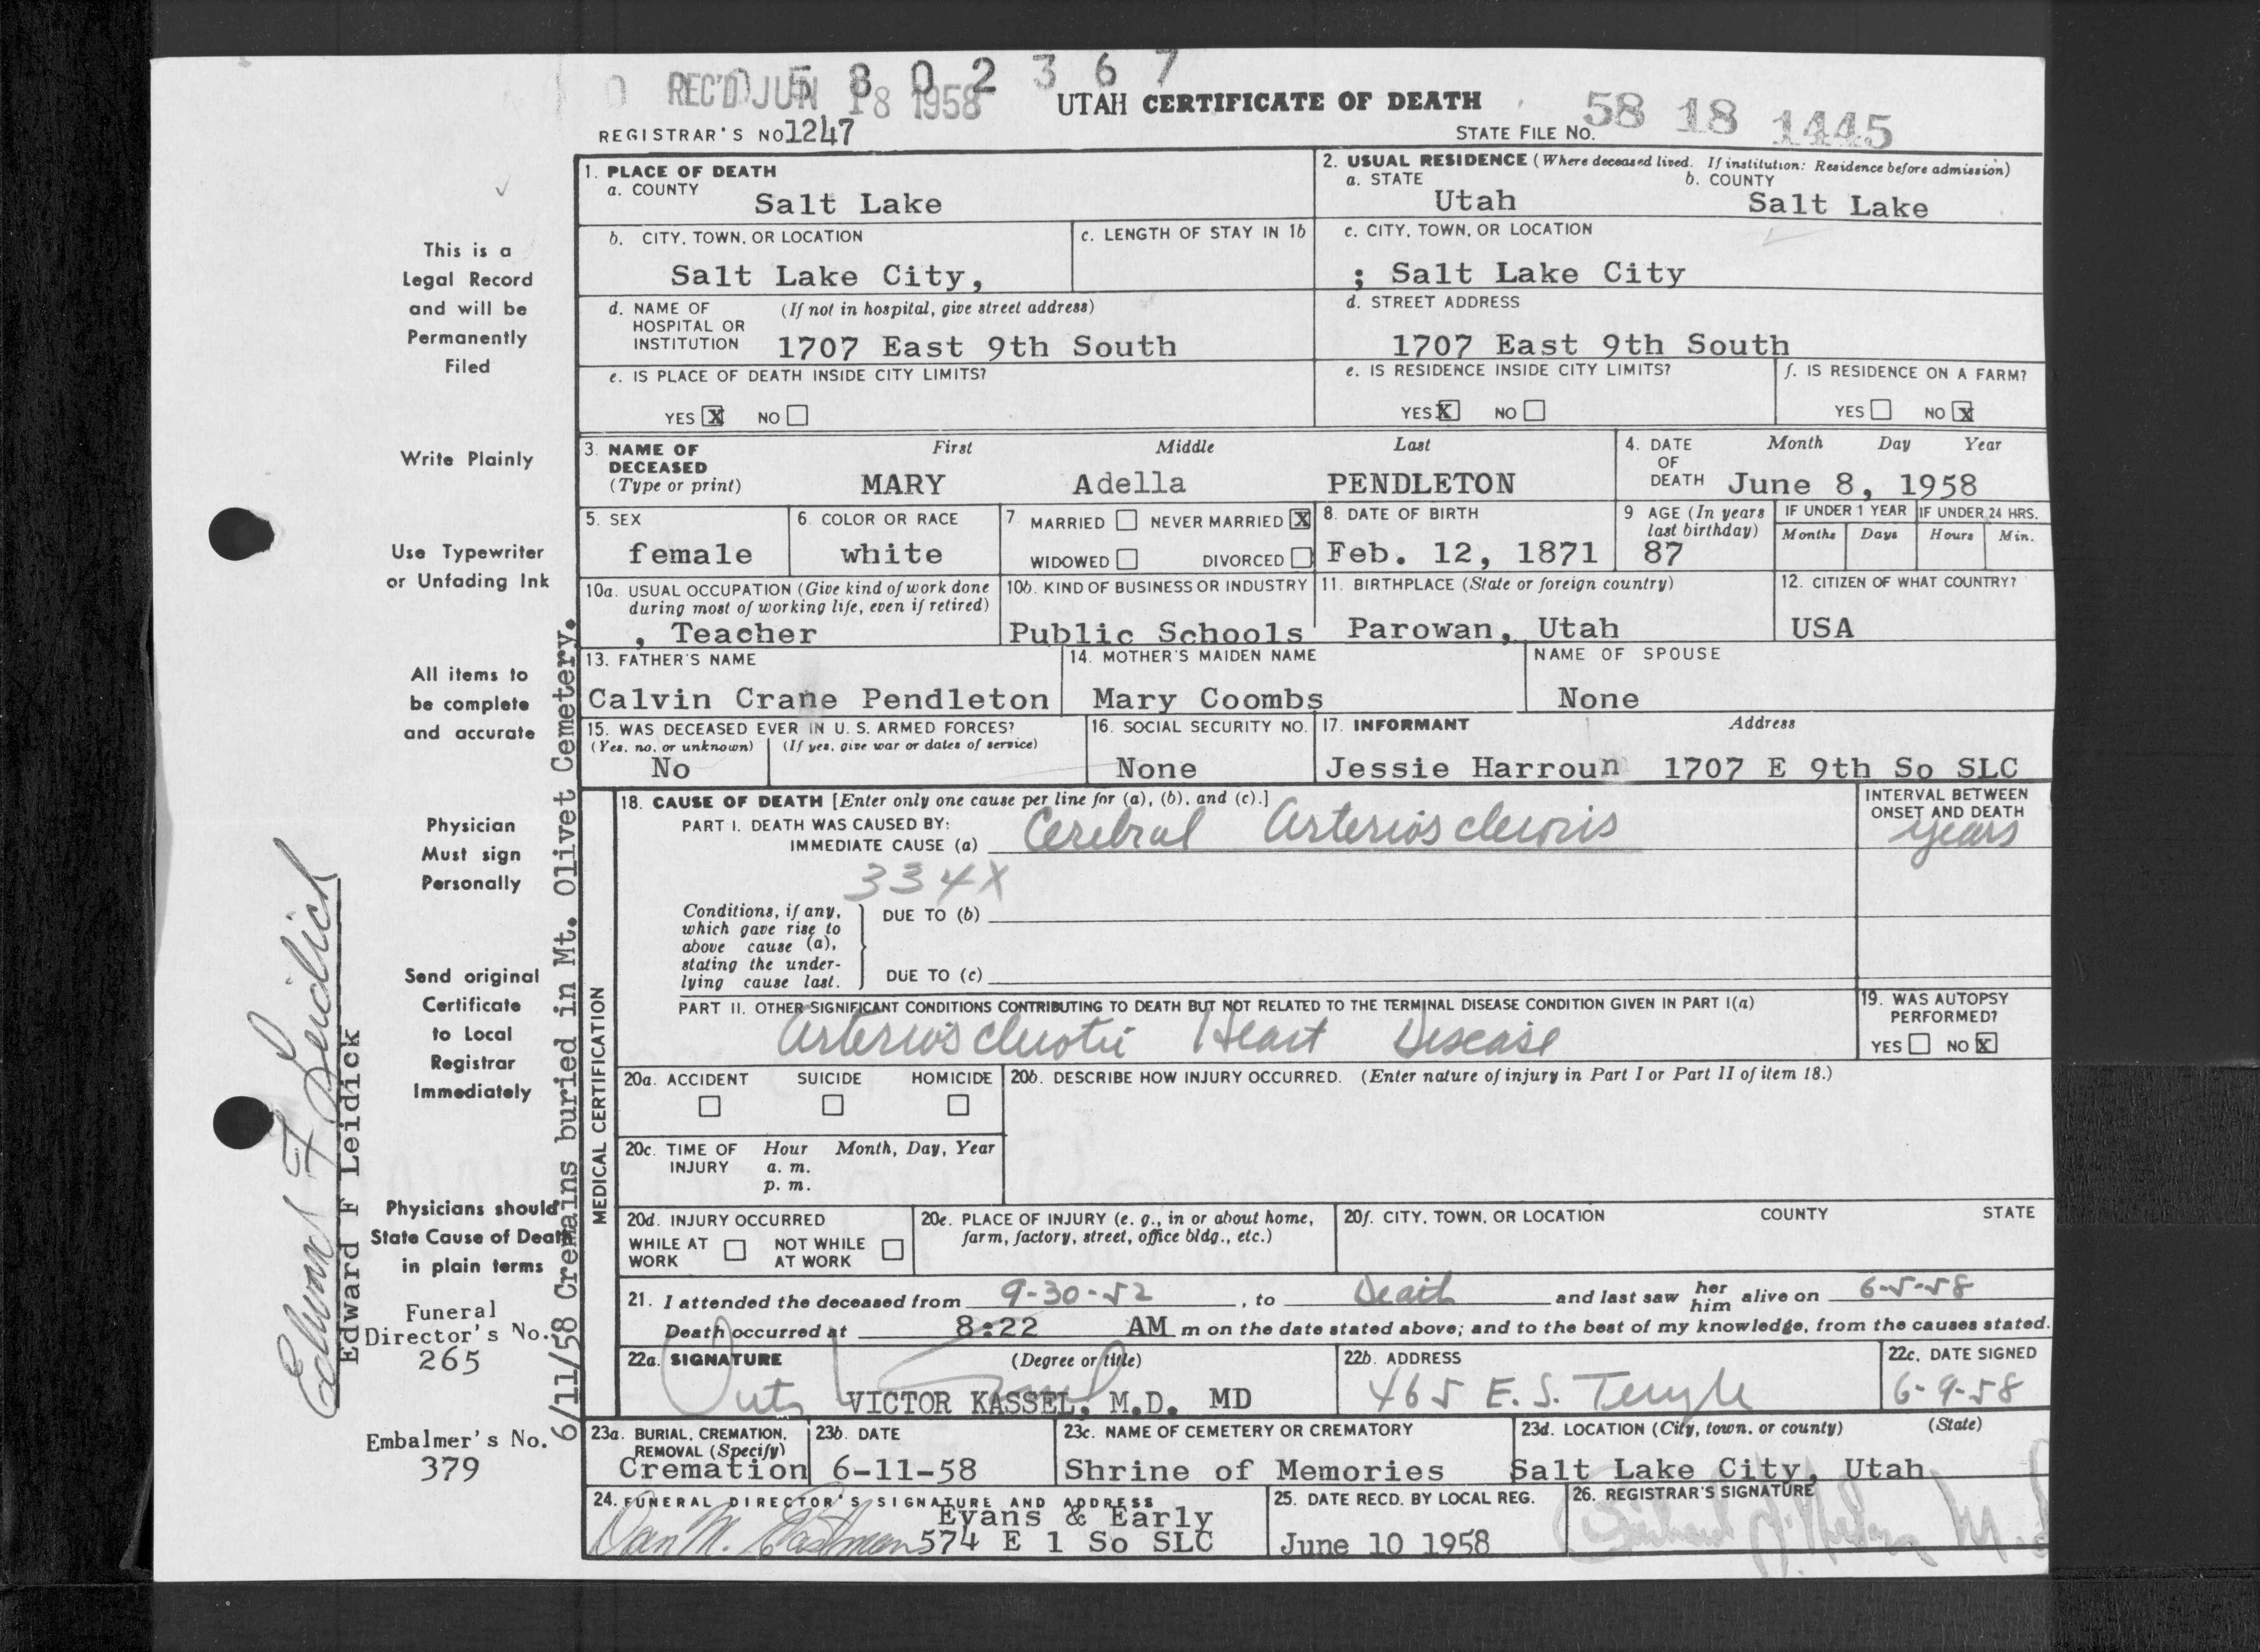 5802367
REC'D JUN 18 1958
UTAH CERTIFICATE OF DEATH
58 18 1445
REGISTRAR'S NO 1247
STATE FILE NO.
1. PLACE OF DEATH
a. COUNTY
Salt Lake
2. USUAL RESIDENCE (Where deceased lived. If institution: Residence before admission)
a. STATE
Utah
b. COUNTY
Salt Lake
b. CITY, TOWN, OR LOCATION
Salt Lake City,
c. LENGTH OF STAY IN 1b
c. CITY, TOWN, OR LOCATION
; Salt Lake City
d. NAME OF HOSPITAL OR INSTITUTION
(If not in hospital, give street address)
1707 East 9th South
d. STREET ADDRESS
1707 East 9th South
e. IS PLACE OF DEATH INSIDE CITY LIMITS?
YES X NO
e. IS RESIDENCE INSIDE CITY LIMITS?
YES X NO
f. IS RESIDENCE ON A FARM?
YES NO X
3. NAME OF DECEASED (Type or print)
First Middle Last
MARY Adella PENDLETON
4. DATE OF DEATH
Month Day Year
June 8, 1958
5. SEX
female
6. COLOR OR RACE
white
7. MARRIED NEVER MARRIED X
WIDOWED DIVORCED
8. DATE OF BIRTH
Feb. 12, 1871
9 AGE (In years last birthday)
87
IF UNDER 1 YEAR
Months Days
IF UNDER 24 HRS.
Hours Min.
10a. USUAL OCCUPATION (Give kind of work done during most of working life, even if retired)
, Teacher
10b. KIND OF BUSINESS OR INDUSTRY
Public Schools
11. BIRTHPLACE (State or foreign country)
Parowan, Utah
12. CITIZEN OF WHAT COUNTRY?
USA
13. FATHER'S NAME
Calvin Crane Pendleton
14. MOTHER'S MAIDEN NAME
Mary Coombs
NAME OF SPOUSE
None
15. WAS DECEASED EVER IN U. S. ARMED FORCES?
(Yes, no, or unknown) (If yes, give war or dates of service)
No
16. SOCIAL SECURITY NO.
None
17. INFORMANT Address
Jessie Harroun 1707 E 9th So SLC
MEDICAL CERTIFICATION
18. CAUSE OF DEATH [Enter only one cause per line for (a), (b), and (c).]
PART I. DEATH WAS CAUSED BY:
IMMEDIATE CAUSE (a) Cerebral Arteriosclerosis
INTERVAL BETWEEN ONSET AND DEATH
years
334X
Conditions, if any, which gave rise to above cause (a), stating the underlying cause last.
DUE TO (b)
DUE TO (c)
PART II. OTHER SIGNIFICANT CONDITIONS CONTRIBUTING TO DEATH BUT NOT RELATED TO THE TERMINAL DISEASE CONDITION GIVEN IN PART I(a)
Arteriosclerotic Heart Disease
19. WAS AUTOPSY PERFORMED?
YES NO X
20a. ACCIDENT SUICIDE HOMICIDE
20b. DESCRIBE HOW INJURY OCCURRED. (Enter nature of injury in Part I or Part II of item 18.)
20c. TIME OF INJURY Hour Month, Day, Year
a. m.
p. m.
20d. INJURY OCCURRED
WHILE AT WORK NOT WHILE AT WORK
20e. PLACE OF INJURY (e. g., in or about home, farm, factory, street, office bldg., etc.)
20f. CITY, TOWN, OR LOCATION COUNTY STATE
21. I attended the deceased from 9-30-52, to Death and last saw her him alive on 6-5-58
Death occurred at 8:22 AM m on the date stated above; and to the best of my knowledge, from the causes stated.
22a. SIGNATURE (Degree or title)
VICTOR KASSEL, M.D. MD
22b. ADDRESS
465 E. S. Temple
22c. DATE SIGNED
6-9-58
23a. BURIAL, CREMATION, REMOVAL (Specify)
Cremation
23b. DATE
6-11-58
23c. NAME OF CEMETERY OR CREMATORY
Shrine of Memories
23d. LOCATION (City, town, or county) (State)
Salt Lake City, Utah
24. FUNERAL DIRECTOR'S SIGNATURE AND ADDRESS
Evans & Early
Dan M. Eastman 574 E 1 So SLC
25. DATE RECD. BY LOCAL REG.
June 10 1958
26. REGISTRAR'S SIGNATURE
This is a
Legal Record
and will be
Permanently
Filed
Write Plainly
Use Typewriter
or Unfading Ink
All items to
be complete
and accurate
Physician
Must sign
Personally
Send original
Certificate
to Local
Registrar
Immediately
Physicians should
State Cause of Death
in plain terms
Funeral
Director's No.
265
Embalmer's No.
379
6/11/58 Cremains buried in Mt. Olivet Cemetery.
Edward F Leidick
Edward F Leidick